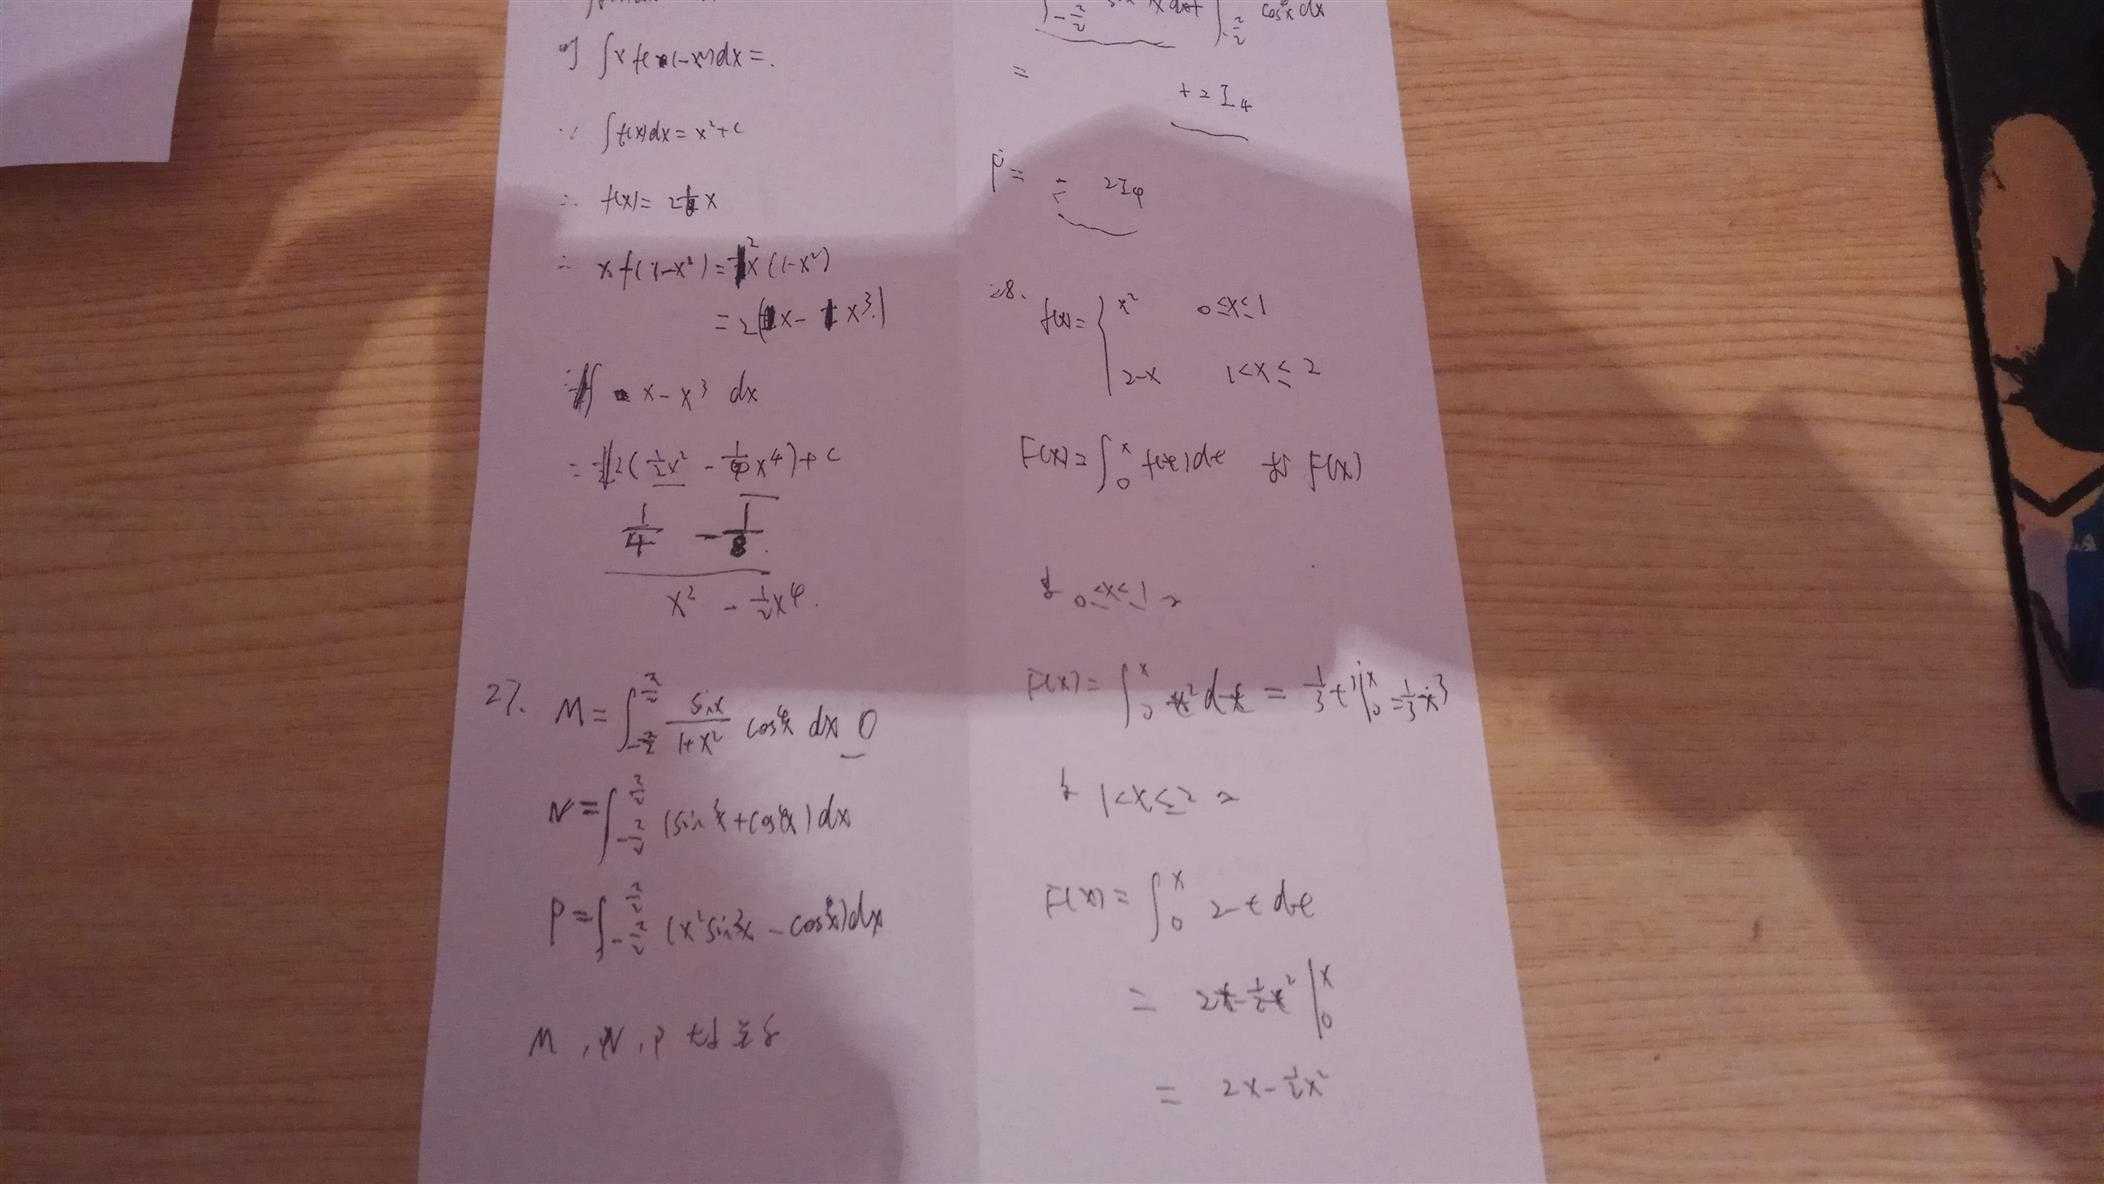 ∫xf(1-x²)dx=.
∵ ∫f(x)dx=x²+c
∴ f(x)=2x
∴ xf(1-x²)=2x(1-x²)
=2(x-x³)
∫ x-x³ dx
=2(½x²-¼x⁴)+c
1/4 -1/8.
x²-½x⁴.
27. M=∫_{-π/2}^{π/2} sinx/(1+x²) cos⁴x dx 0
N=∫_{-π/2}^{π/2} (sin³x+cos⁴x)dx
P=∫_{-π/2}^{π/2} (x²sin³x-cos⁴x)dx
M,N,P
cos⁴xdx
=
+2I₄
P= = 2I₄
28. f(x)={ x² 0≤x≤1
2-x 1<x≤2
F(x)=∫₀ˣ f(t)dt F(x)
0≤x≤1
F(x)=∫₀ˣ t²dt = ⅓t³|₀ˣ=⅓x³
1<x≤2
F(x)=∫₀ˣ 2-t dt
= 2t-½t²|₀ˣ
= 2x-½x²